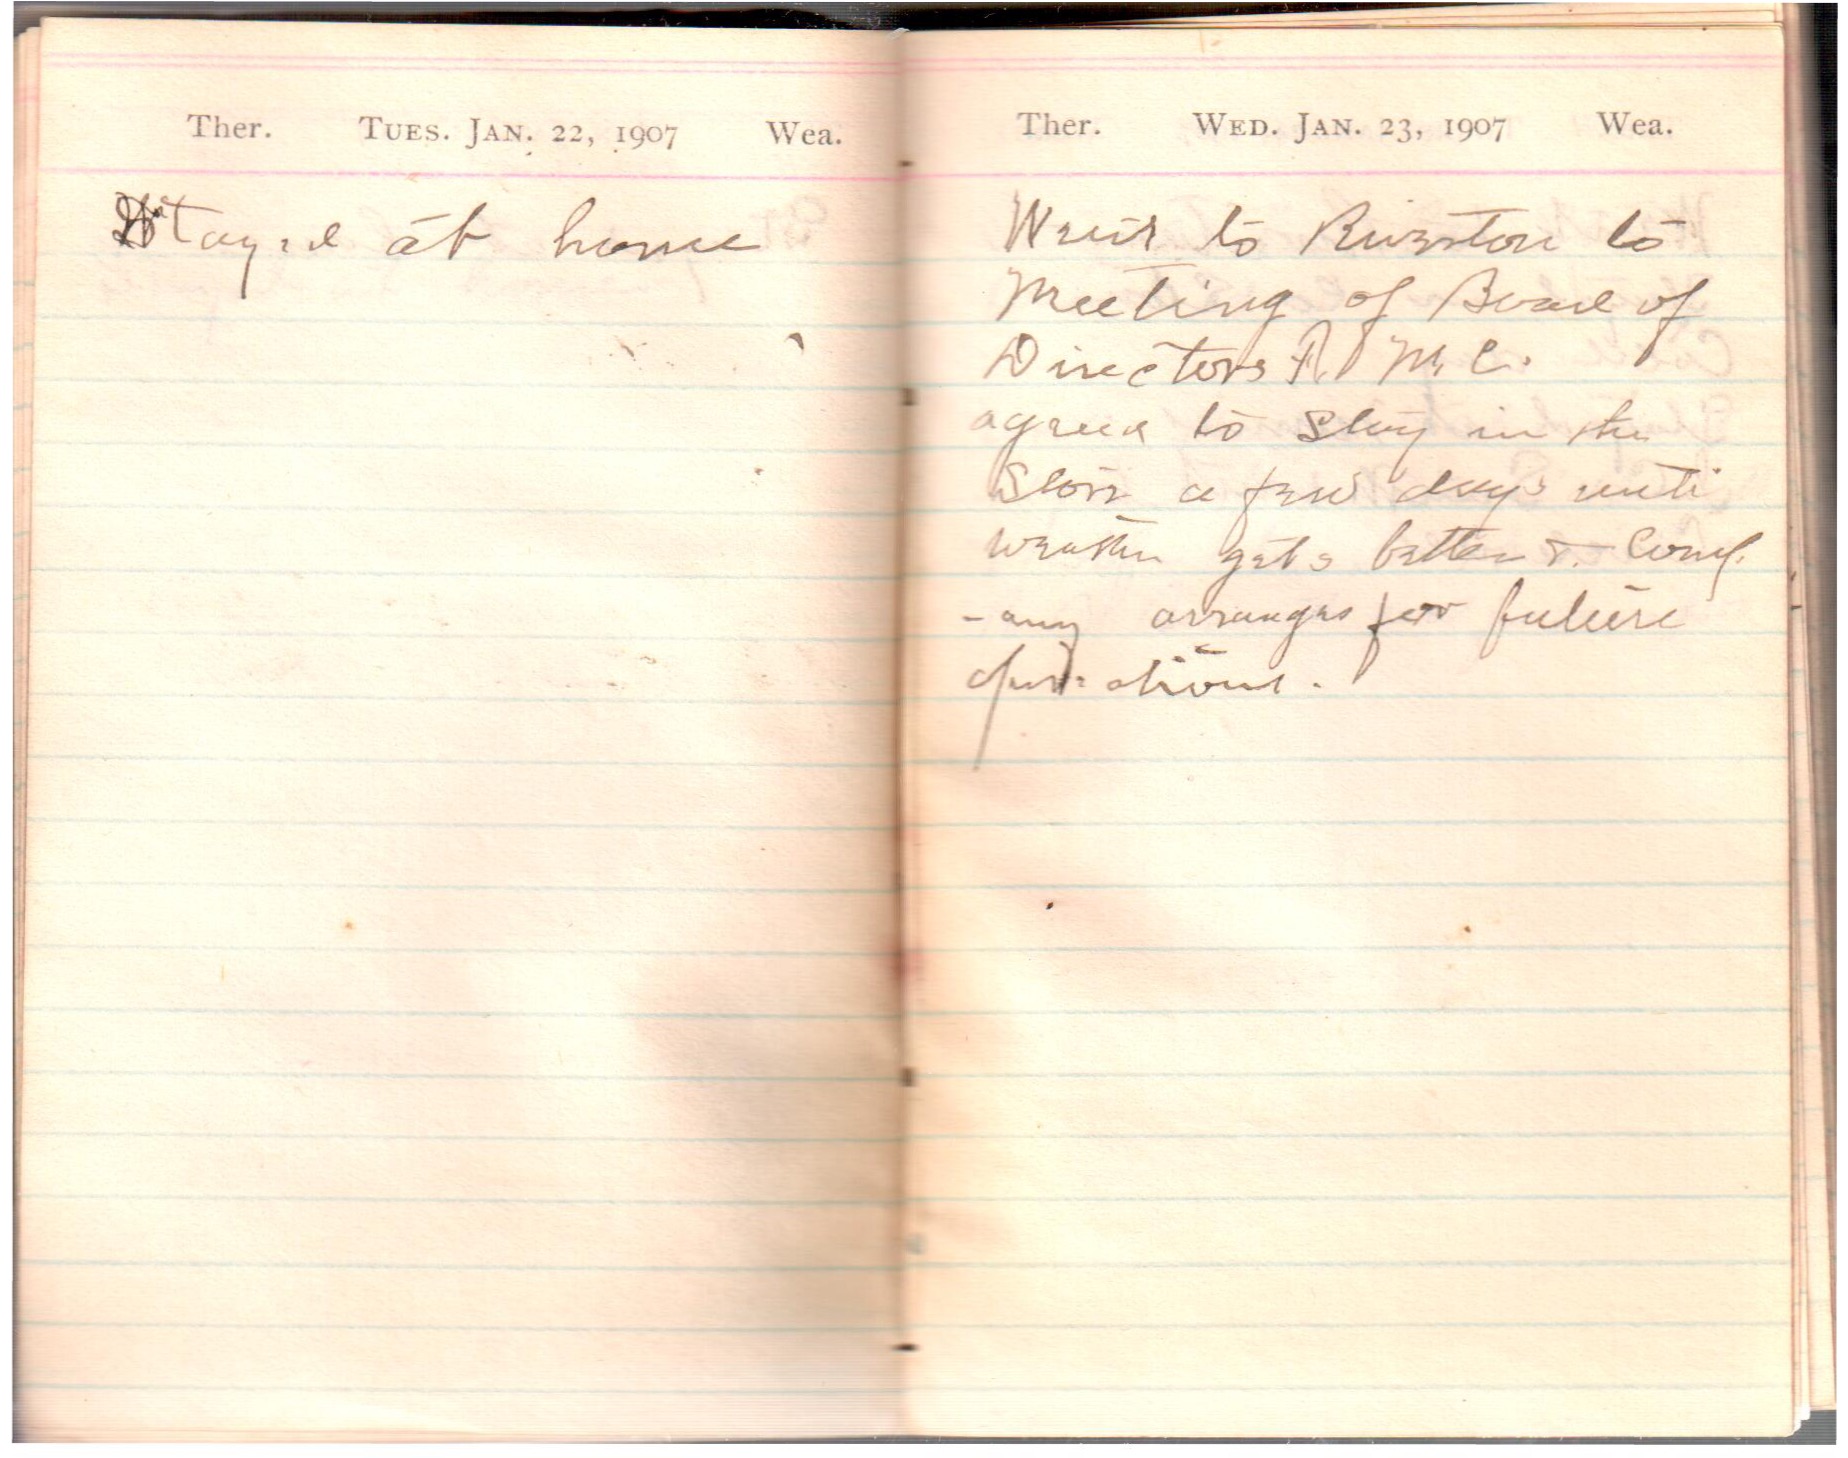 Ther. TUES. JAN. 22, 1907 Wea.
Stayed at home
Ther. WED. JAN. 23, 1907 Wea.
Went to Riverton to
Meeting of Board of
Directors R. M. C.
agreed to stay in the
Store a few days until
weather gets better & Comp.
-any arranges for future
operations.